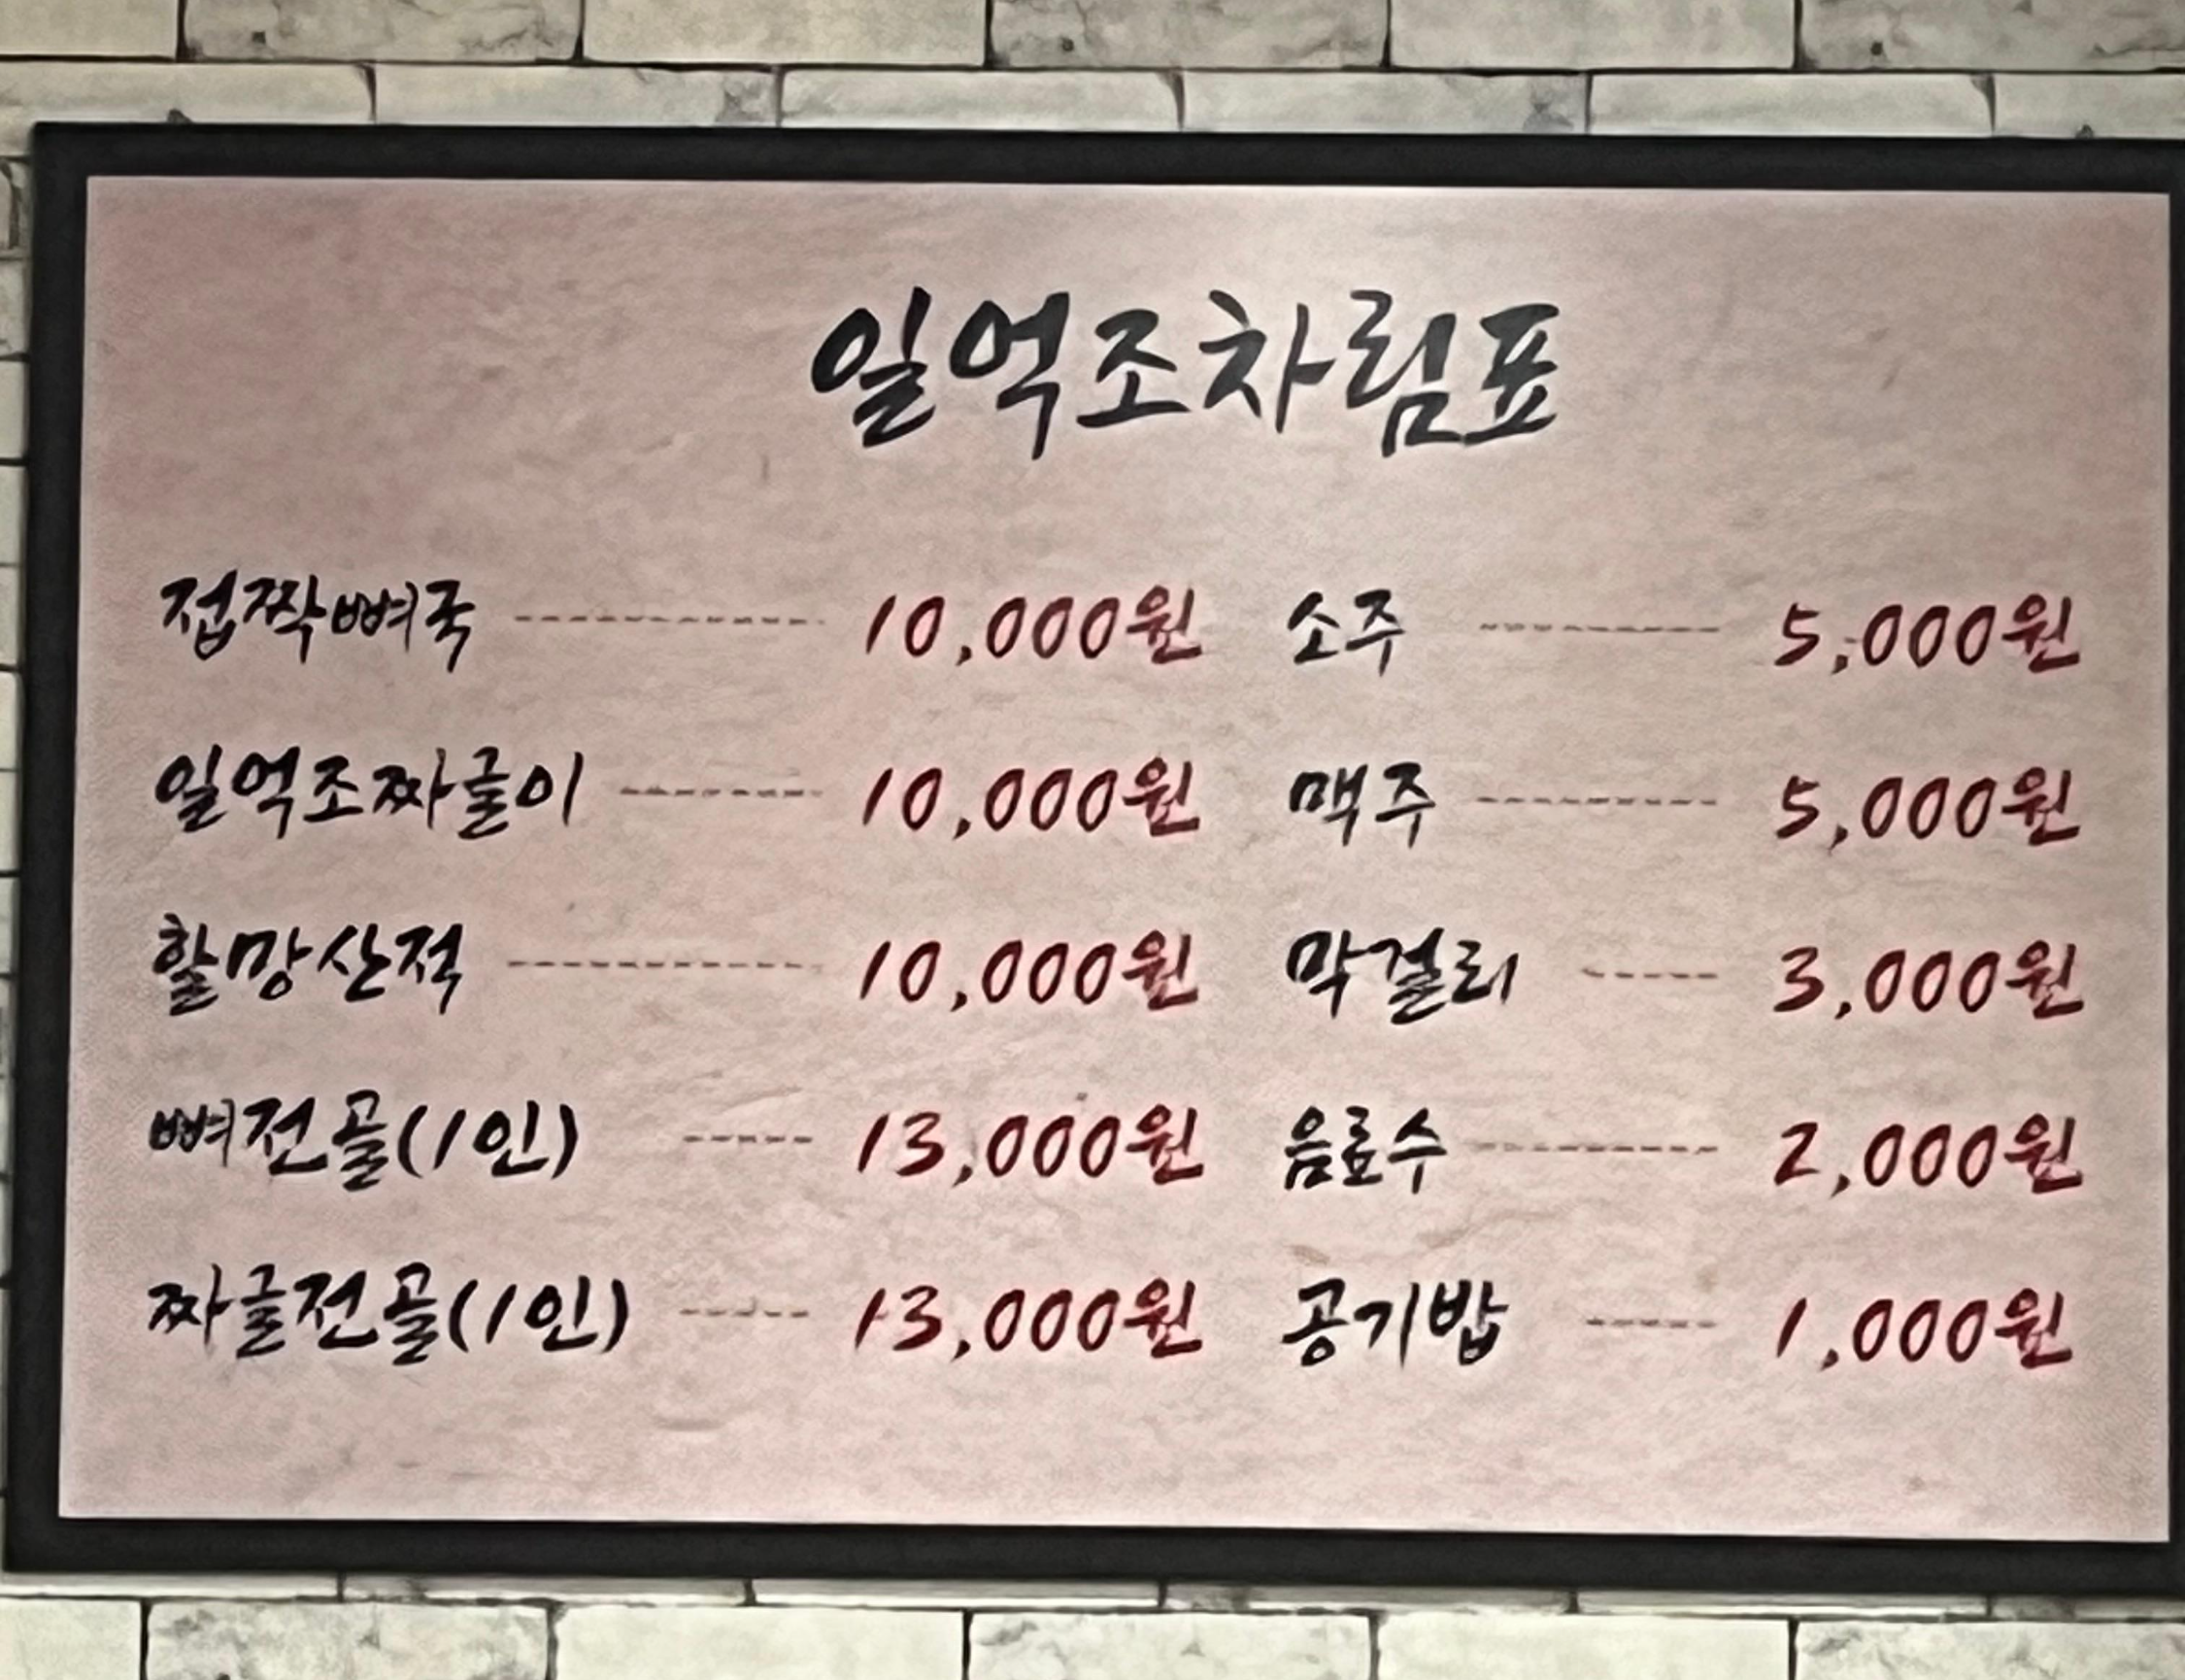 일억조차림표
접짝뼈국 ------------ 10,000원
일억조짜글이 -------- 10,000원
할망산적 ------------ 10,000원
뼈전골(1인) ----- 13,000원
짜글전골(1인) ----- 13,000원
소주 ---------- 5,000원
맥주 ---------- 5,000원
막걸리 ----- 3,000원
음료수 ---------- 2,000원
공기밥 ----- 1,000원